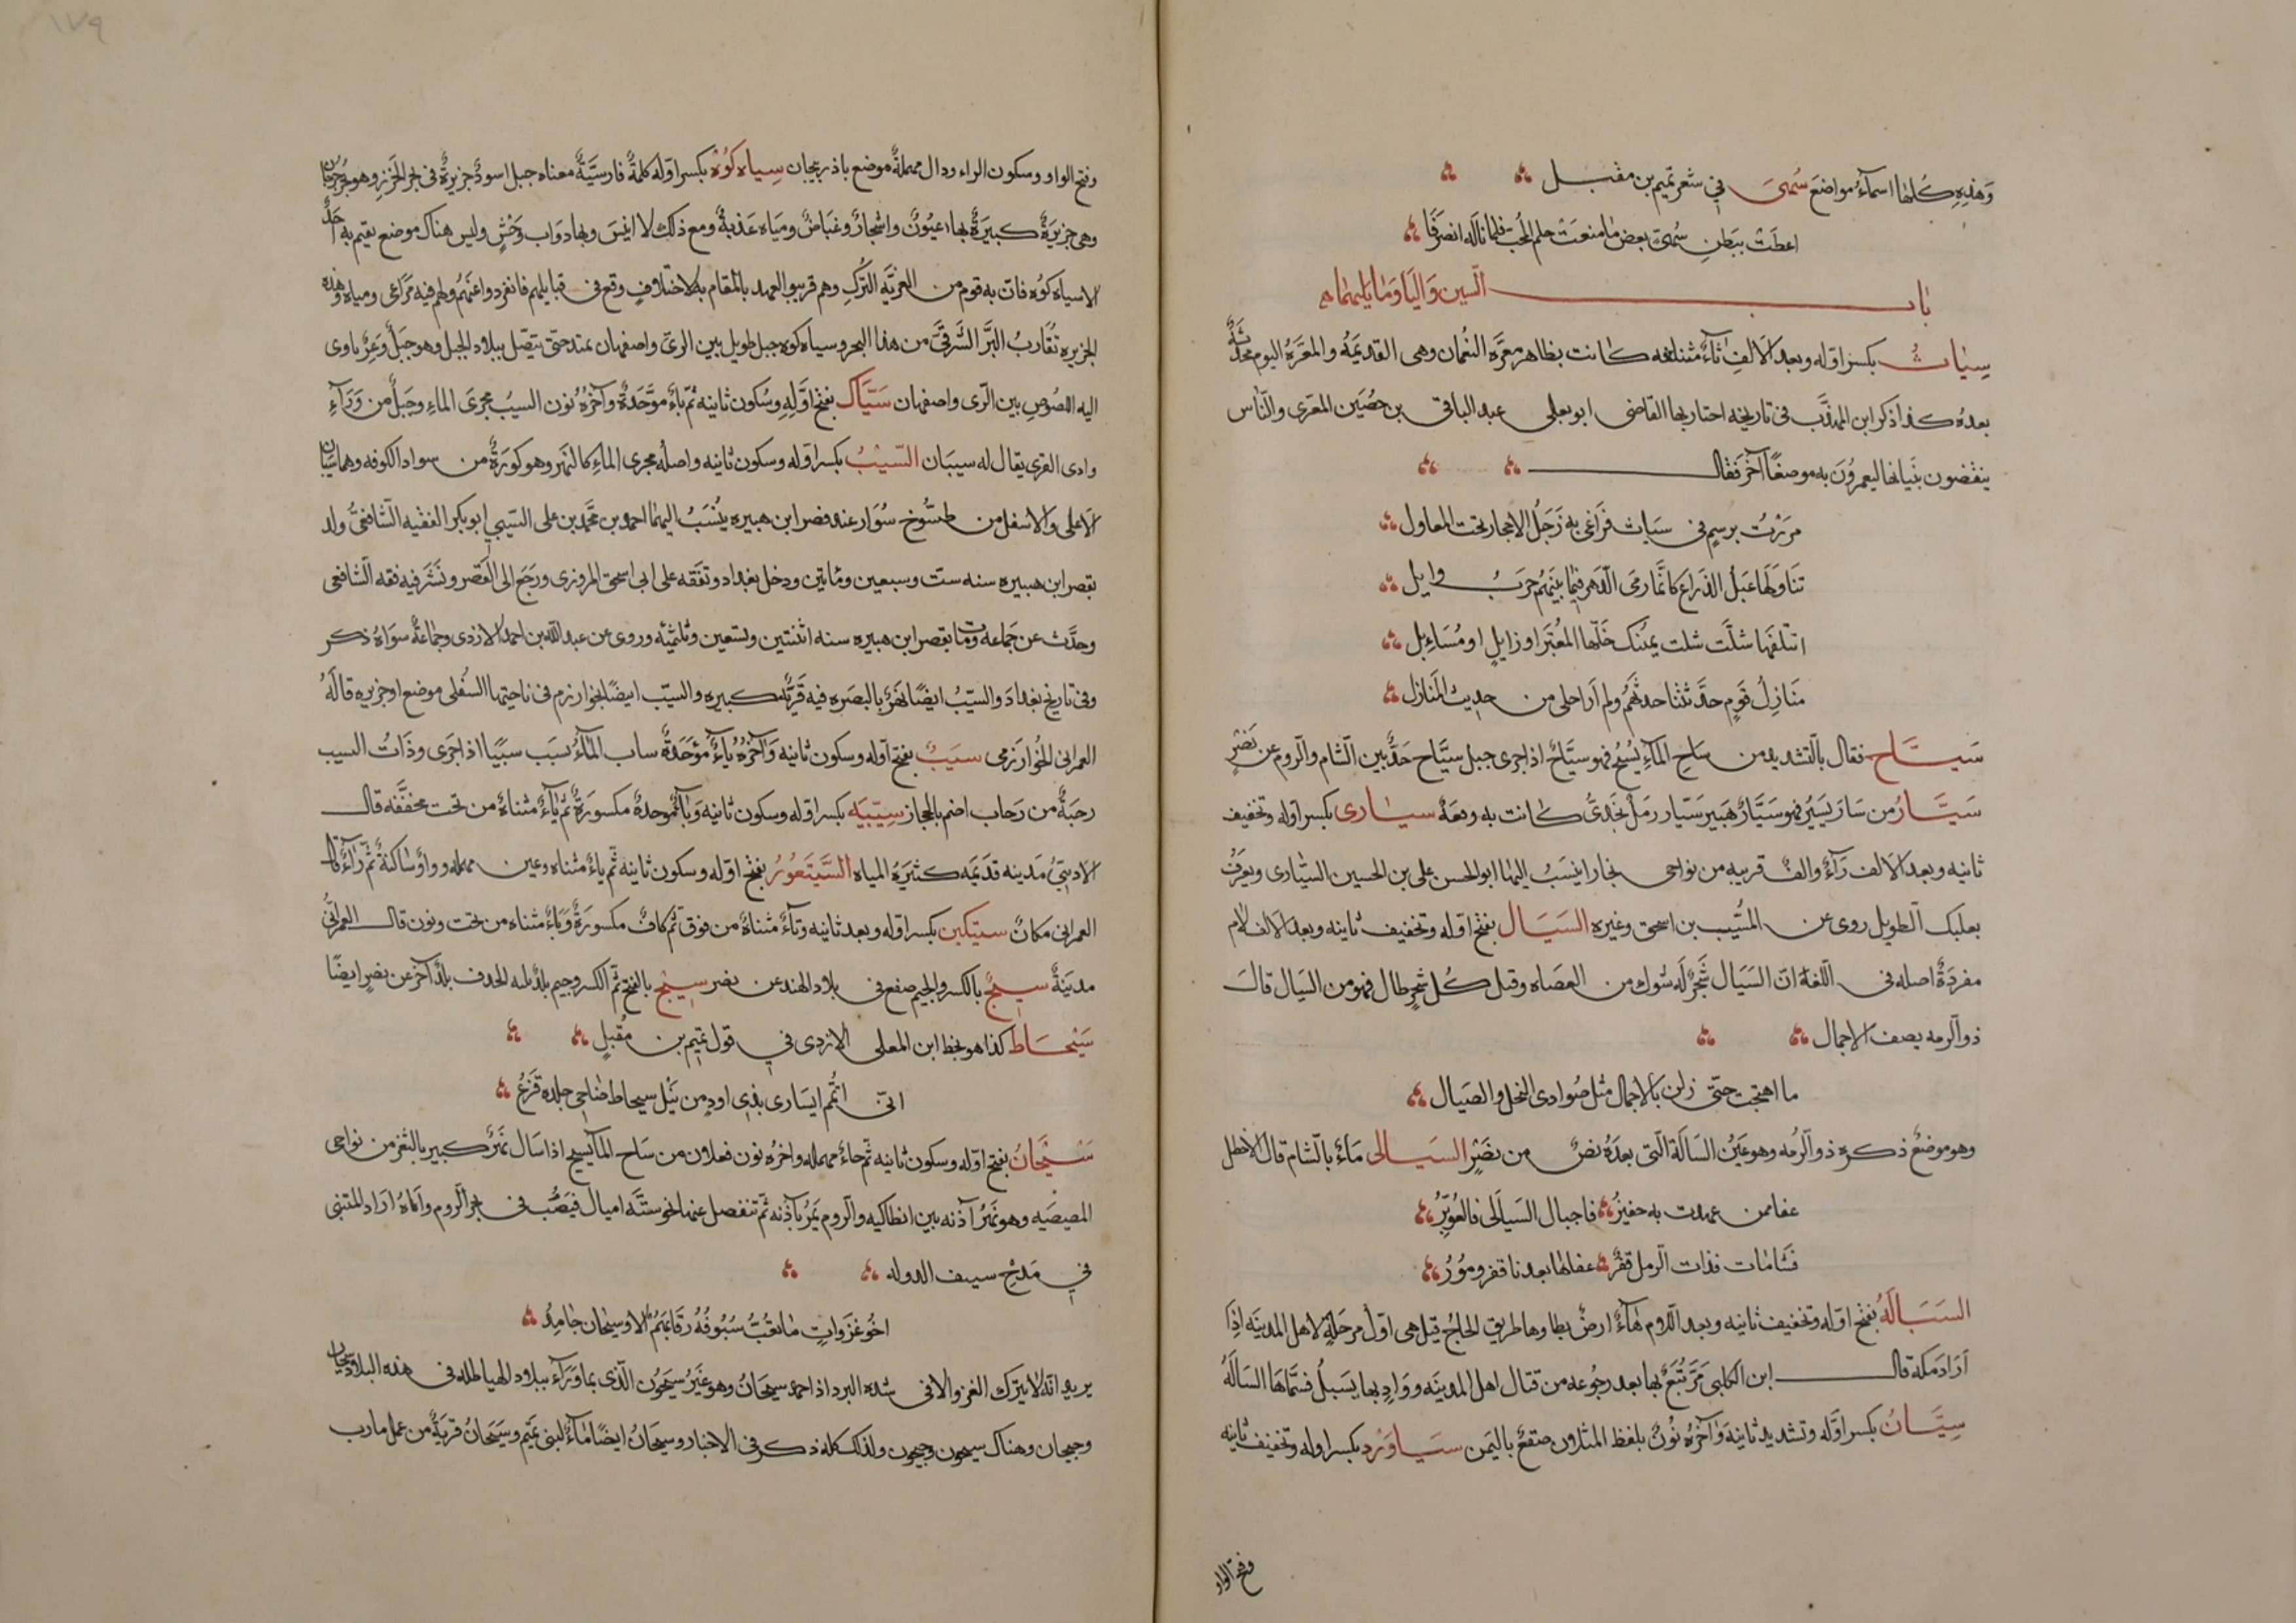 وَهٰذِهِ كُلها اسمآءُ مواضعَ سُمىَ في شعر تميم بن مقبل
اعطَت ببَطنِ سُمىّ بعضَ ما منعَت حلم المحبّ فلما ناله انصرفا
باب السين وَاليا وَما يليهما
سِيَاث بكسر اوّله وبعد الالفِ ثاءٌ مثناة كانت بظاهر معرّة النعمان وهى القديمَة والمعرّة اليوم محدثة
بعدهُ كذا ذكر ابن المهذّب فى تاريخه اجتاز بها القاضى ابو يعلى عبد الباقى بن حصَين المعرى والنّاس
ينقضون بنيانها ليعمرُونَ به موضعًا آخر فقال
مررتُ برسمٍ فى سيَاث فرَاعَنى به زَجَلُ الاحجار تحت المعاول
تناوَلها عَبل الذراع كانّما رمَى الدّهر فيما بينهُم حربَ وايل
اتتلفها شلّت شلت يمينك خلّها لمُعتبر او زايلٍ او مُسَاءِل
مَنازلُ قومٍ حدّثتنا حديثهم ولم اَر احلى من حديث المنازل
سَيَّاح فقال بالتّشديد من سَاحِ المآءِ يسُيحُ فهو سيّاحٌ اذا جرى جبل سيّاح حَدٌّ بين الشام والروم عن نَصْرٍ
سَيَّارُ من سَارَ يَسيرُ فهو سَيَّارٌ هَبير سَيّار رمل نجدىٌّ كانت به وقعَة سيارى بكسر اوّله وتخفيف
ثانيه وبعد الالف رَآءٌ والفٌ قرية من نواحى بخارا ينسَبُ اليها ابو الحسن على بن الحسين السّيارى ويعرَفُ
بعلبك الطويل روى عن المسَّيب بن اسحق وغيره السَيَال بفتح اوّله وتخفيف ثانيه وبعد الالف لام
مفردَةٌ اصله فى اللّغة انّ السَيَال شجَرٌ لَه شوك من العضاه وقيل كُلّ شجرٍ طال فهو من السَيال قالَ
ذو الرمه يصف الاجمال
ما اهتجت حتّى زلن بالاجمال مثل صَوادى النخل والصَيال
وهو موضعٌ ذكره ذو الرُمه وهو عَينُ السَالَة الّتى بعدَهُ نصٌ من نصَرٍ السَيالى مَآءٌ بالشام قال الاخطل
عفا ممن عهدت به حفيرُ فاجبال السَيالَى فالعُوَيرُ
فشَامَات فذات الرمل قفرٌ عفاها بعدنا قفر ومُورُ
السَيَالَةُ بفتح اوّله وتخفيف ثانيه وبعد اللام هَآءٌ ارضٌ يطاوها طريق الحاجُّ قيل هى اوّلُ مرحَلةٍ لاهل المدينَة اِذِا
اَرَادَ مَكة قال ابن الكلبى مَرَّ تُبّعٌ بها بعد رجُوعه من قتال اهل المدينَه ووَادٍ بها يَسيلُ فسَمّاهَا السيَالَةُ
سِيَّانُ بكسر اوّله وتشديد ثانيهَ وَآخرهُ نُونٌ بلفظ المثلين صقعٌ باليَمن سيَاوَرْد بكسر اوله وتخفيف ثانيه
وفتح الواو
وفتح الواو وسكون الراء ودال مهملةٌ موضع باذربيجان سِياه كُوُه بكسر اوّله كلمةٌ فارسيَّةٌ معناه جبل اسودُ جزيرةٌ فى بحر الخزَر وهو بحر جُرجان
وهى جزيَرةٌ كبيَرةٌ بها عيُونٌ واشجارٌ وغيَاضٌ وميَاه عَذبةٌ ومع ذلك لا انيسَ وبها دوَاب وَحْشٍ وليس هناك موضع يقيم به اَحَدٌ
الا سياه كوُه فان به قوم من الغزيّه التُركِ وهم قريبو العهد بالمقام به لاختلافٍ وقع فى قبايلهم فانفردوا عنهُم ولهم فيه مَرَاعى ومياه وهذه
الجزيره تُقاربُ البَرَّ الشَرقىَّ من هذا البحر وسياه كوه جبل طويل بين الرىّ واصفهان يمتد حتى يتّصل ببلاد الجبل وهو جَبلٌ وَعرٌ ياوى
اليه اللصُوص بين الرّى واصفهان سَيَّاك بفتح اوّلهِ وسُكون ثانيه ثمّ باءٌ موَّحدةٌ وآخرُهُ نون السيبُ مجرىَ الماءِ وجَبلٌ من وَرَآءِ
وادى القرى يقال له سيبان السّيْبُ بكسر اوّله وسكون ثانيه واصلُه مجرى الماءِ كالنهر وهو كورَةٌ من سواد الكوفه وهما سيبان
الاَعلى والاسفل من طسُّوج سُورَا عند قصر ابن هبيره ينُسَبُ اليهمَا احمد بن محَّمد بن على السّيبي ابو بكر الفقيه الشّافعىُّ ولد
بقصر ابن هبيره سنه ستّ وسبعين ومايتين ودخل بغداد وتفَقه على ابى اسحق المروزى ورَجَع الى القَصْر ونَشَر فيه فقه الشّافعى
وحدَّث عن جَماعه ومَات بقصر ابن هبيره سنه اثنتين وتسعين وثلثميّه وروى عن عبد اللّه بن احمد الازدى وجماعَةٌ سوَاهُ ذكر
وفى تاريخ بغدادَ والسّيْبُ ايضًا نَهرٌ بالبصَره فيه قَريَةٌ كبيره والسيّب ايضًا بخوارزم فى ناحيتها السُفلى موضع او جزيره قاَلهُ
العمرانى الخوُارَزمى سيَبُ بفتح اوّله وسكون ثانيه وَآخرُهُ بَآءٌ مؤحّدةٌ ساب المآءُ يسيَب سيَبًا اذا جرَى وذَاتُ السيب
رحَبَةٌ من رَحاب اضم بالحجاز سِيّبَيَه بكسر اوّله وسكون ثانيه وَبَآءٌ موحدةٌ مكسورَةٌ ثمّ يآءٌ مثناةٌ من تحت مخفّفه قال
الاديبىُّ مَدينه قدَيمَه كثيَرة المياه السَّيَتَعُورُ بفتح اوّله وسكون ثانيه ثمّ ياءٌ مثناه وعين مهمله وواوٌ سَاكنةٌ ثمّ رآءٌ قال
العمرانى مكانٌ سيتكين بكسر اوّله وبعد ثانيه وتآءٌ مثناةٌ من فوق ثمّ كافٌ مكسورَةٌ وَيَاءٌ مثناه من تحت ونون قال العمرانُّى
مدينَةٌ سيجٌ بالكسر والجيم صقع فى بلاد الهند عن نصر سيَجٌ بالفتح ثمّ الكسر وجيم بلدٌ بلده الحدف بلدٌ آخر عن نصرٍ ايضًا
سَيْحَاط كذا هو بخط ابن المعلى الازدى في قول تميم بن مُقبلٍ
انّى اتُمّم ايسَارى بذى اودٍ من نَيْل سيحاط ضَاحِى جلده قزَعُ
سَيْحَانُ بفتح اوّله وسكون ثانيه ثّم حاءٌ مهمله واخرُه نون فعلان من سَاح المآ يسيح اذا سَال نَهرٌ كبير بالثغر من نواحى
المصيصَيه وهو نَهرُ آذنه بين انطاكيه والروم يَمُرّ بآذنه ثمّ تنفصل عنها نحو ستّة اميال فيَصُّب فى بحر الروم وايّاهُ ارَاد المتنبى
في مَدْح سيف الدوله
اخُو غَزَواتٍ مَا تغُبُّ سُيُوفُهُ رقَابهَمُ الا وسيحَان جَامِدُ
يريد انّه لا يترك الغزو الا فى شده البرد اذا جمد سيحَانُ وهو غيرُ سَيحُون الّذى بما وَرَآء ببلاد الهياطله فى هذه البلاد سيحان
وجيحان وهناك سيحون وجيحون ولذلك كله ذكر فى الاخبار وسيحَانُ ايضًا مَاءٌ لبنى تميَم وسيَحَانُ قريَةٌ من عمل مارب